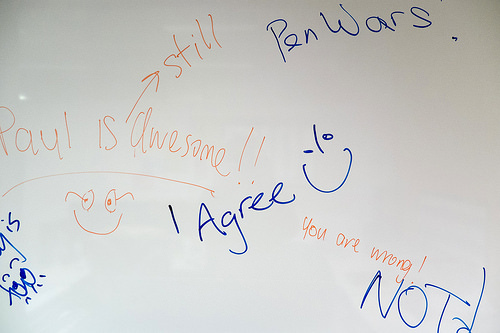 Pen Wars.
still
Paul is awesome!!
I Agree
You are wrong!
NOT